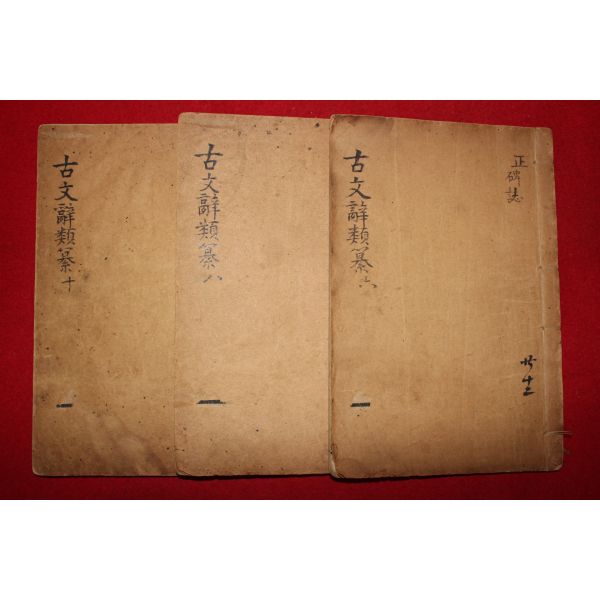 正碑誌
古文辭類纂六
古文辭類纂八
古文辭類纂十